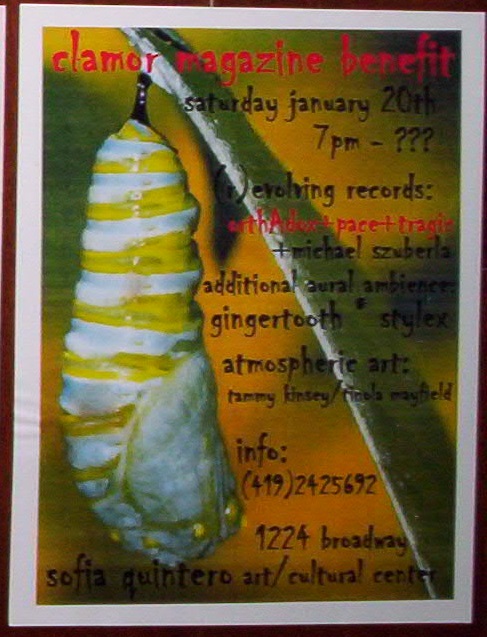 clamor magazine benefit
saturday january 20th
7pm - ???
(r)evolving records:
orthAdox+pace+tragic
+michael szuberla
additional aural ambience:
gingertooth * stylex
atmospheric art:
tammy kinsey/tinola mayfield
info:
(419)2425692
1224 broadway
sofia quintero art/cultural center